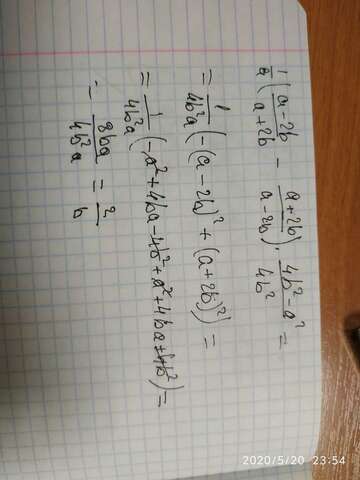 1/a ( (a-2b)/(a+2b) - (a+2b)/(a-2b) ) · (4b²-a²)/4b² =
= 1/4b²a (-(a-2b)² + (a+2b)²) =
= 1/4b²a (-a²+4ba-4b²+a²+4ba+4b²) =
= 8ba/4b²a = 2/b
2020/5/20 23:54